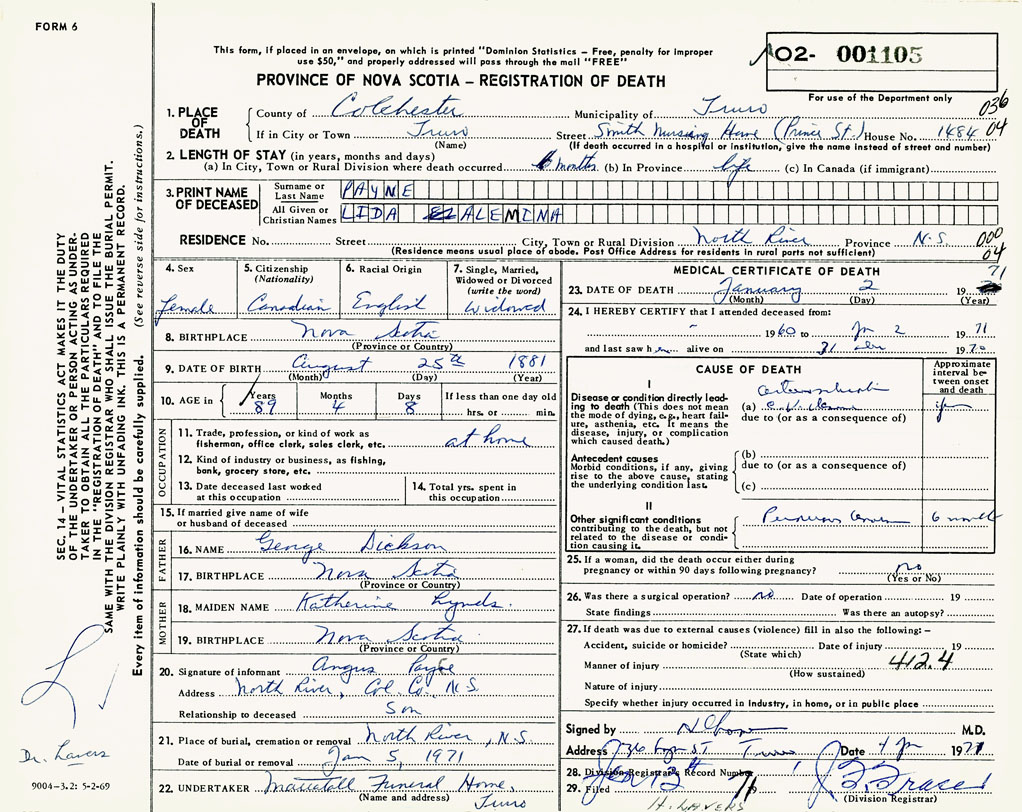 FORM 6
This form, if placed in an envelope, on which is printed "Dominion Statistics – Free, penalty for improper
use $50," and properly addressed will pass through the mail "FREE"
PROVINCE OF NOVA SCOTIA – REGISTRATION OF DEATH
02- 001105
For use of the Department only
036
04
1. PLACE OF DEATH
County of Colchester Municipality of Truro
If in City or Town Truro Street Smith Nursing Home (Prince St.) House No. 1484
(Name) (If death occurred in a hospital or institution, give the name instead of street and number)
2. LENGTH OF STAY (in years, months and days)
(a) In City, Town or Rural Division where death occurred 6 months (b) In Province life (c) In Canada (if immigrant)
3. PRINT NAME OF DECEASED
Surname or Last Name PAYNE
All Given or Christian Names LIDA ALEMINA
RESIDENCE No. Street City, Town or Rural Division North River Province N.S.
000
04
(Residence means usual place of abode. Post Office Address for residents in rural parts not sufficient)
4. Sex Female
5. Citizenship (Nationality) Canadian
6. Racial Origin English
7. Single, Married, Widowed or Divorced (write the word) Widowed
8. BIRTHPLACE Nova Scotia
(Province or Country)
9. DATE OF BIRTH August 25th 1881
(Month) (Day) (Year)
10. AGE in Years 89 Months 4 Days 8 If less than one day old hrs. or min.
OCCUPATION
11. Trade, profession, or kind of work as fisherman, office clerk, sales clerk, etc. at home
12. Kind of industry or business, as fishing, bank, grocery store, etc.
13. Date deceased last worked at this occupation
14. Total yrs. spent in this occupation
15. If married give name of wife or husband of deceased
FATHER
16. NAME George Dickson
17. BIRTHPLACE Nova Scotia
(Province or Country)
MOTHER
18. MAIDEN NAME Katherine Lynds.
19. BIRTHPLACE Nova Scotia
(Province or Country)
20. Signature of informant Angus Payne
Address North River, Col. Co. N.S.
Relationship to deceased Son
21. Place of burial, cremation or removal North River, N.S.
Date of burial or removal Jan 5, 1971
22. UNDERTAKER Mattatall Funeral Home,
(Name and address) Truro
MEDICAL CERTIFICATE OF DEATH
23. DATE OF DEATH January 2 19 71
(Month) (Day) (Year)
24. I HEREBY CERTIFY that I attended deceased from:
1960 to Jan 2 19 71
and last saw her alive on 31 Dec 1970
CAUSE OF DEATH
Approximate interval between onset and death
I
Disease or condition directly leading to death (This does not mean the mode of dying, e.g., heart failure, asthenia, etc. It means the disease, injury, or complication which caused death.)
(a)
due to (or as a consequence of)
Antecedent causes
Morbid conditions, if any, giving rise to the above cause, stating the underlying condition last.
(b)
due to (or as a consequence of)
(c)
II
Other significant conditions contributing to the death, but not related to the disease or condition causing it.
6
25. If a woman, did the death occur either during pregnancy or within 90 days following pregnancy? no
(Yes or No)
26. Was there a surgical operation? no Date of operation 19
State findings Was there an autopsy?
27. If death was due to external causes (violence) fill in also the following: –
Accident, suicide or homicide? Date of injury 19
(State which)
412.4
Manner of injury
(How sustained)
Nature of injury
Specify whether injury occurred in Industry, in home, or in public place
Signed by M.D.
Address Truro Date 4 Jan 1971
28. Division Registrar's Record Number
29. Filed 19 71
(Division Registrar)
H. LAVERS
SEC. 14 – VITAL STATISTICS ACT MAKES IT THE DUTY
OF THE UNDERTAKER OR PERSON ACTING AS UNDER-
TAKER TO OBTAIN ALL THE PARTICULARS REQUIRED
IN THE "REGISTRATION OF DEATH" AND TO FILE THE
SAME WITH THE DIVISION REGISTRAR WHO SHALL ISSUE THE BURIAL PERMIT.
WRITE PLAINLY WITH UNFADING INK. THIS IS A PERMANENT RECORD.
Every item of information should be carefully supplied. (See reverse side for instructions.)
Dr. Lavers
9004-3.2: 5-2-69